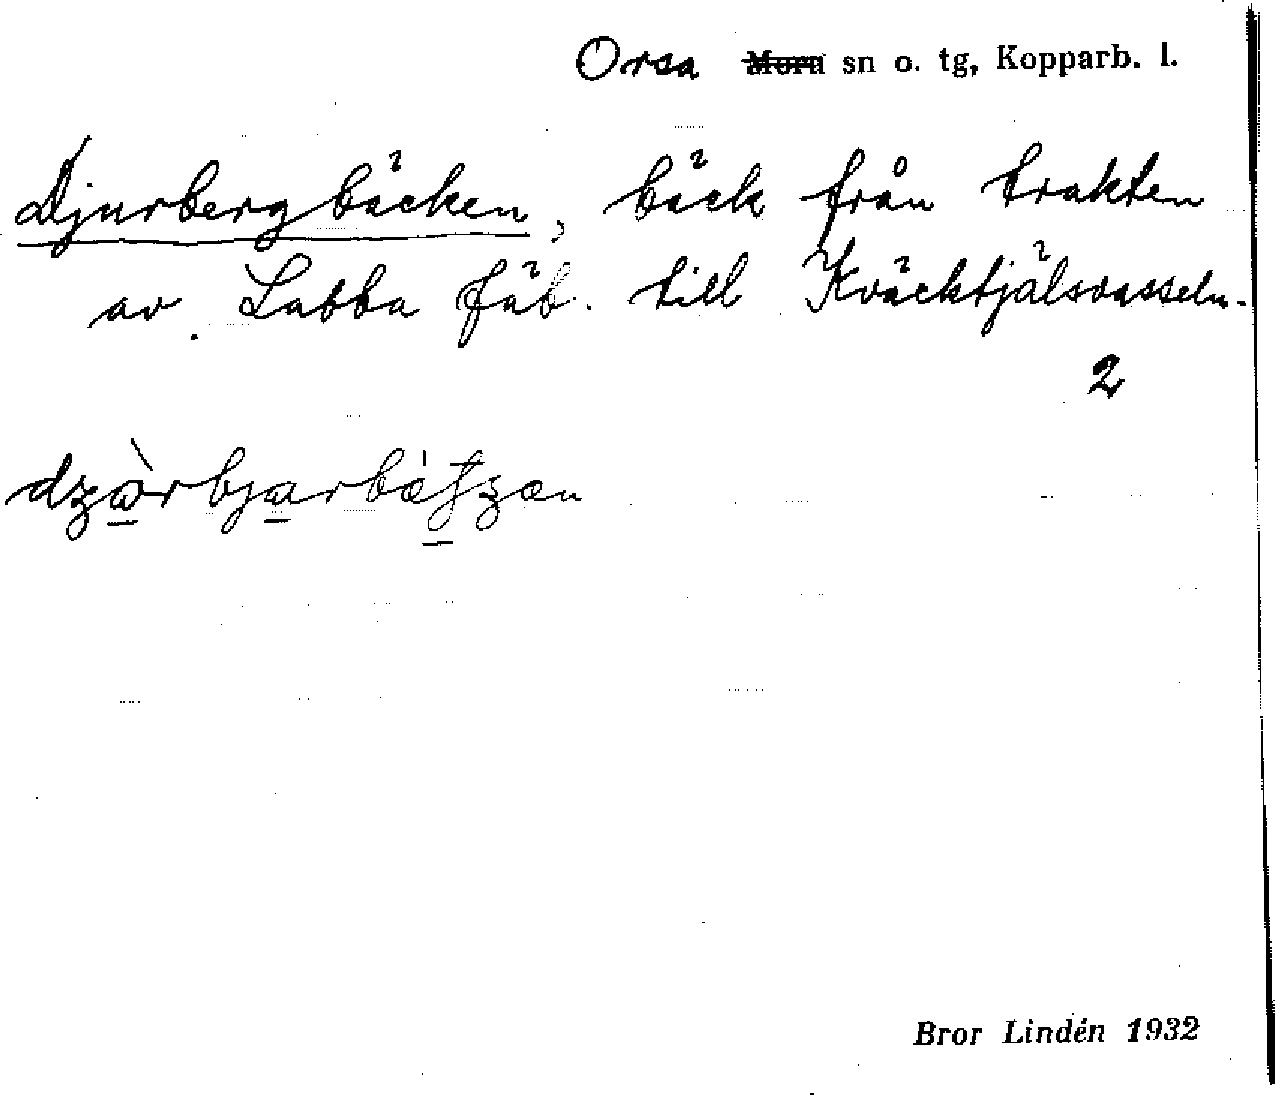 Orsa Mora sn o. tg, Kopparb. l.
Djurbergbäcken, bäck från trakten
av Labba fäb. till Kväcktjälsvasseln.
2
Bror Lindén 1932